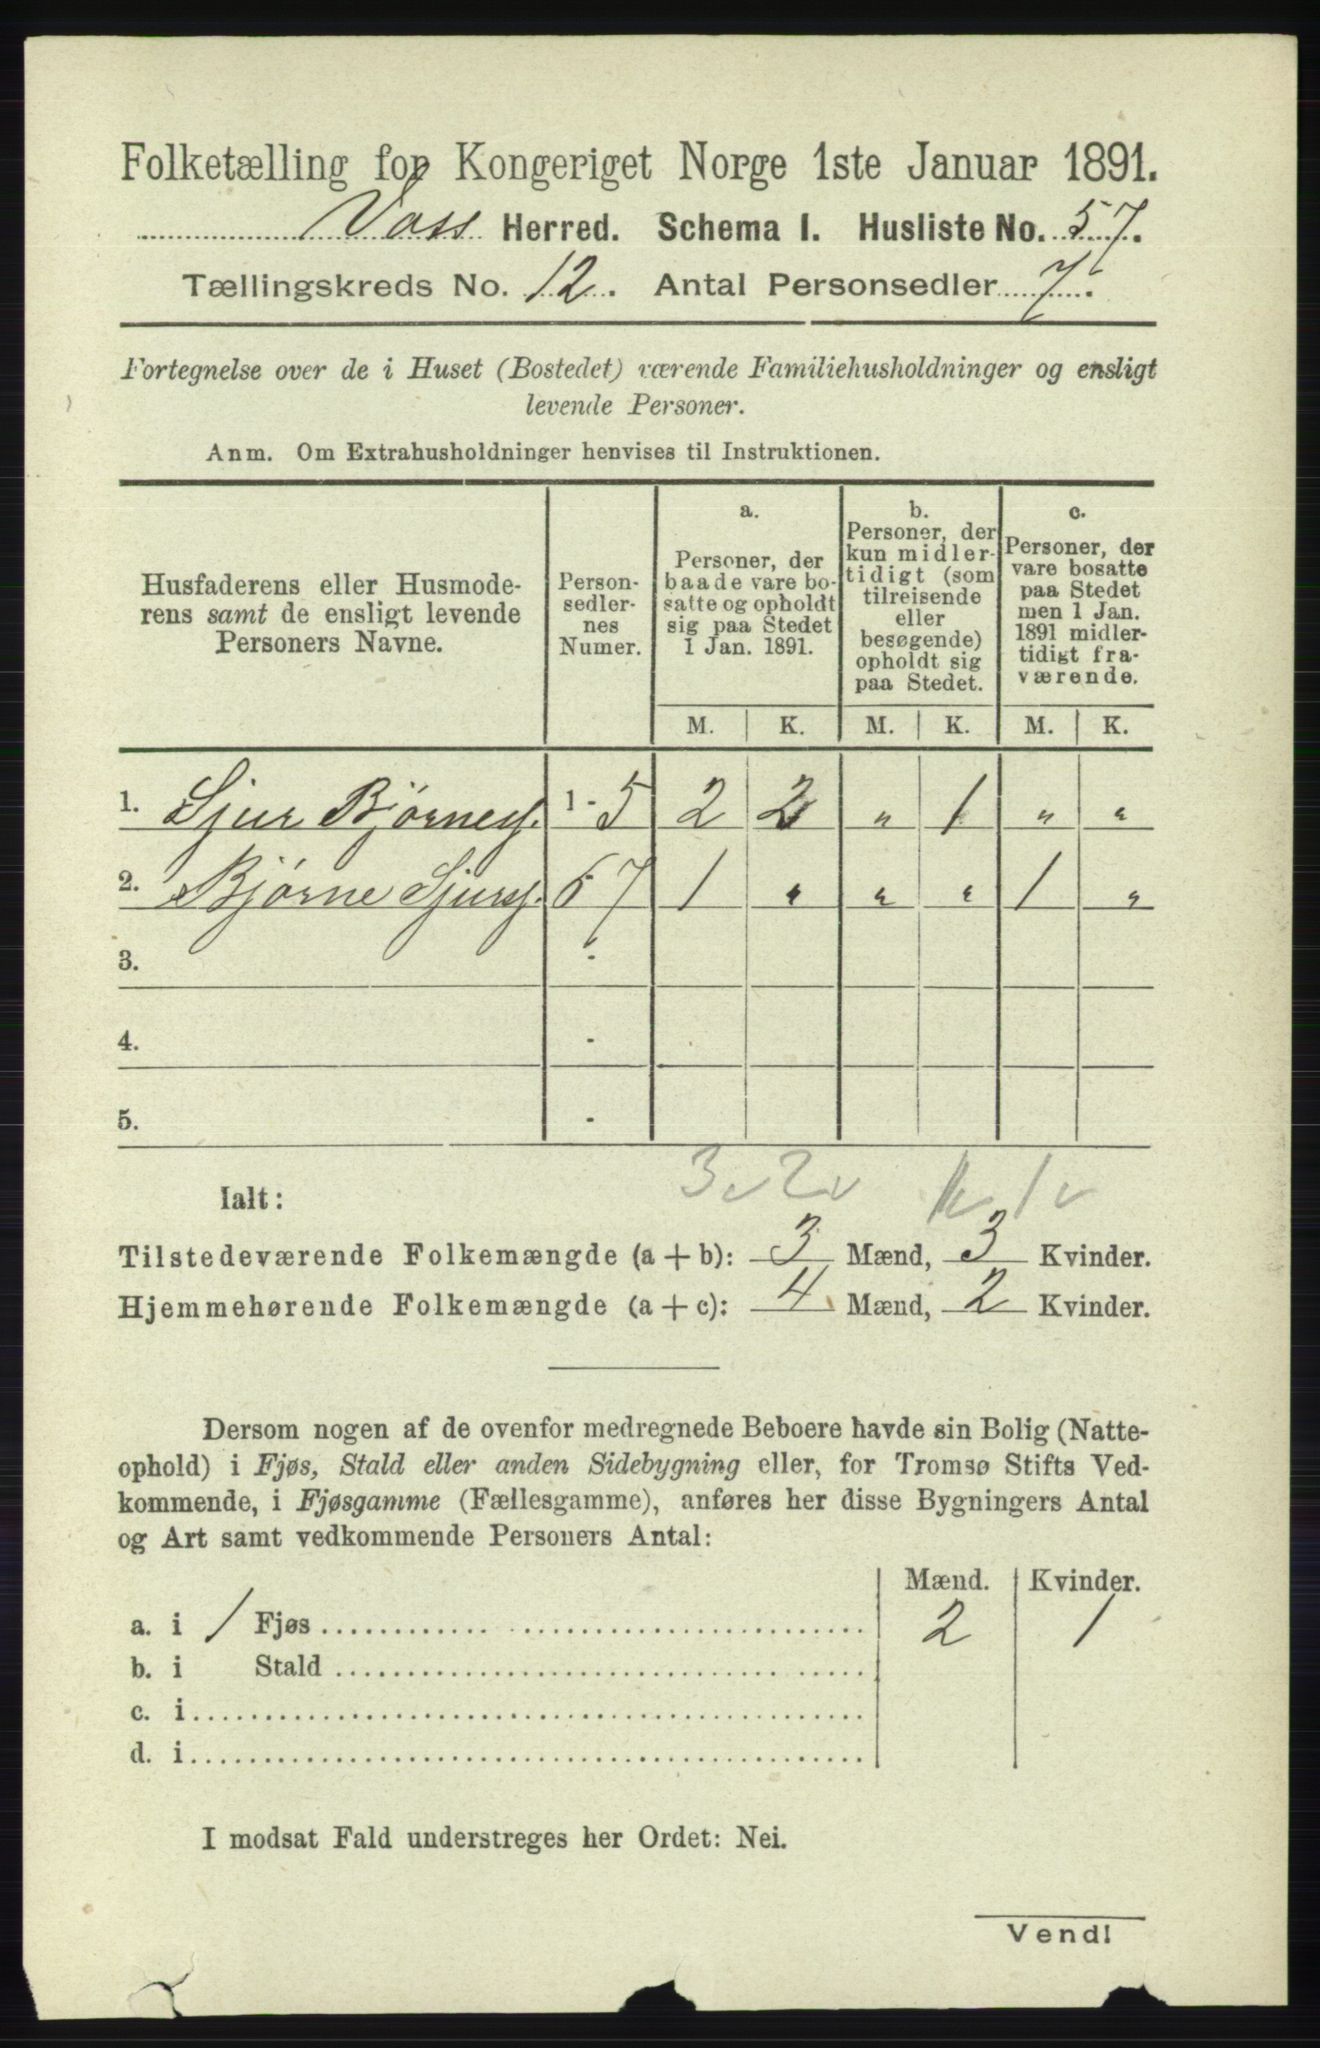 Folketælling for Kongeriget Norge 1ste Januar 1891.
Voss Herred. Schema I. Husliste No. 57.
Tællingskreds No. 12. Antal Personsedler 7.
Fortegnelse over de i Huset (Bostedet) værende Familiehusholdninger og ensligt
levende Personer.
Anm. Om Extrahusholdninger henvises til Instruktionen.
Husfaderens eller Husmode-
rens samt de ensligt levende
Personers Navne.
Person-
sedler-
nes
Numer.
a.
Personer, der
baade vare bo-
satte og opholdt
sig paa Stedet
1 Jan. 1891.
b.
Personer, der
kun midler-
tidigt (som
tilreisende
eller
besøgende)
opholdt sig
paa Stedet.
c.
Personer, der
vare bosatte
paa Stedet
men 1 Jan.
1891 midler-
tidigt fra-
værende.
M. K. M. K. M. K.
1. Sjur Bjørness. 1-5 2 2 „ 1 „ „
2. Bjørne Sjurss. 6-7 1 „ „ „ 1 „
3. -
4. -
5. -
3 v 2 v 1 v 1 v
Ialt:
Tilstedeværende Folkemængde (a + b): 3 Mænd, 3 Kvinder.
Hjemmehørende Folkemængde (a + c): 4 Mænd, 2 Kvinder.
Dersom nogen af de ovenfor medregnede Beboere havde sin Bolig (Natte-
ophold) i Fjøs, Stald eller anden Sidebygning eller, for Tromsø Stifts Ved-
kommende, i Fjøsgamme (Fællesgamme), anføres her disse Bygningers Antal
og Art samt vedkommende Personers Antal:
Mænd. Kvinder.
a. i 1 Fjøs 2 1
b. i Stald
c. i
d. i
I modsat Fald understreges her Ordet: Nei.
Vend!